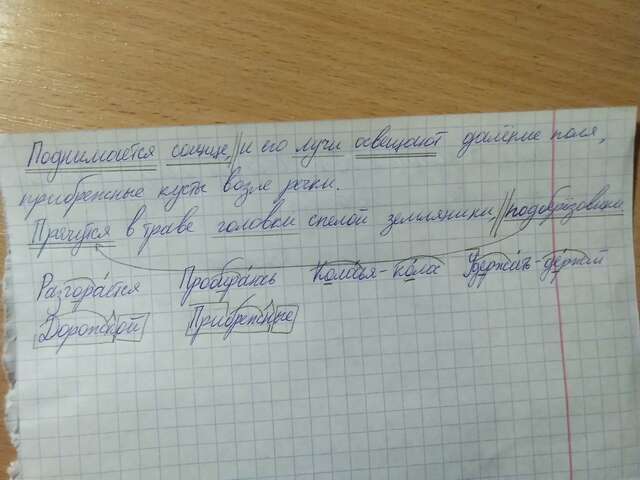 Поднимается солнце,//и его лучи освещают далёкие поля,
прибрежные кусты возле речки.
Прячутся в траве головки спелой земляники//подобразовики
Разгорается Пробираюсь Колосья-колос Удержать-держит
Дорожкой Прибрежные